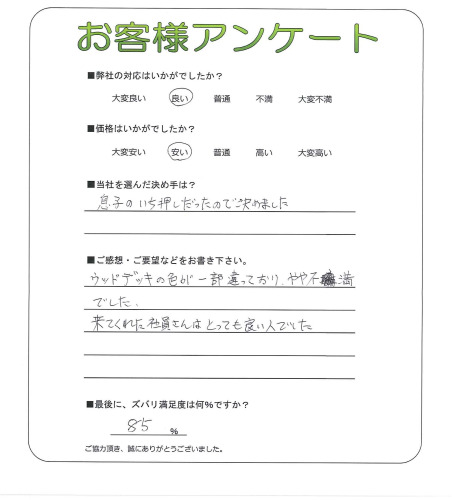 お客様アンケート
■弊社の対応はいかがでしたか?
大変良い 良い 普通 不満 大変不満
■価格はいかがでしたか?
大変安い 安い 普通 高い 大変高い
■当社を選んだ決め手は?
息子のいち押しだったので決めました
■ご感想・ご要望などをお書き下さい。
ウッドデッキの色が一部違っており、やや不満
でした。
来てくれた社員さんはとっても良い人でした
■最後に、ズバリ満足度は何%ですか?
85 %
ご協力頂き、誠にありがとうございました。